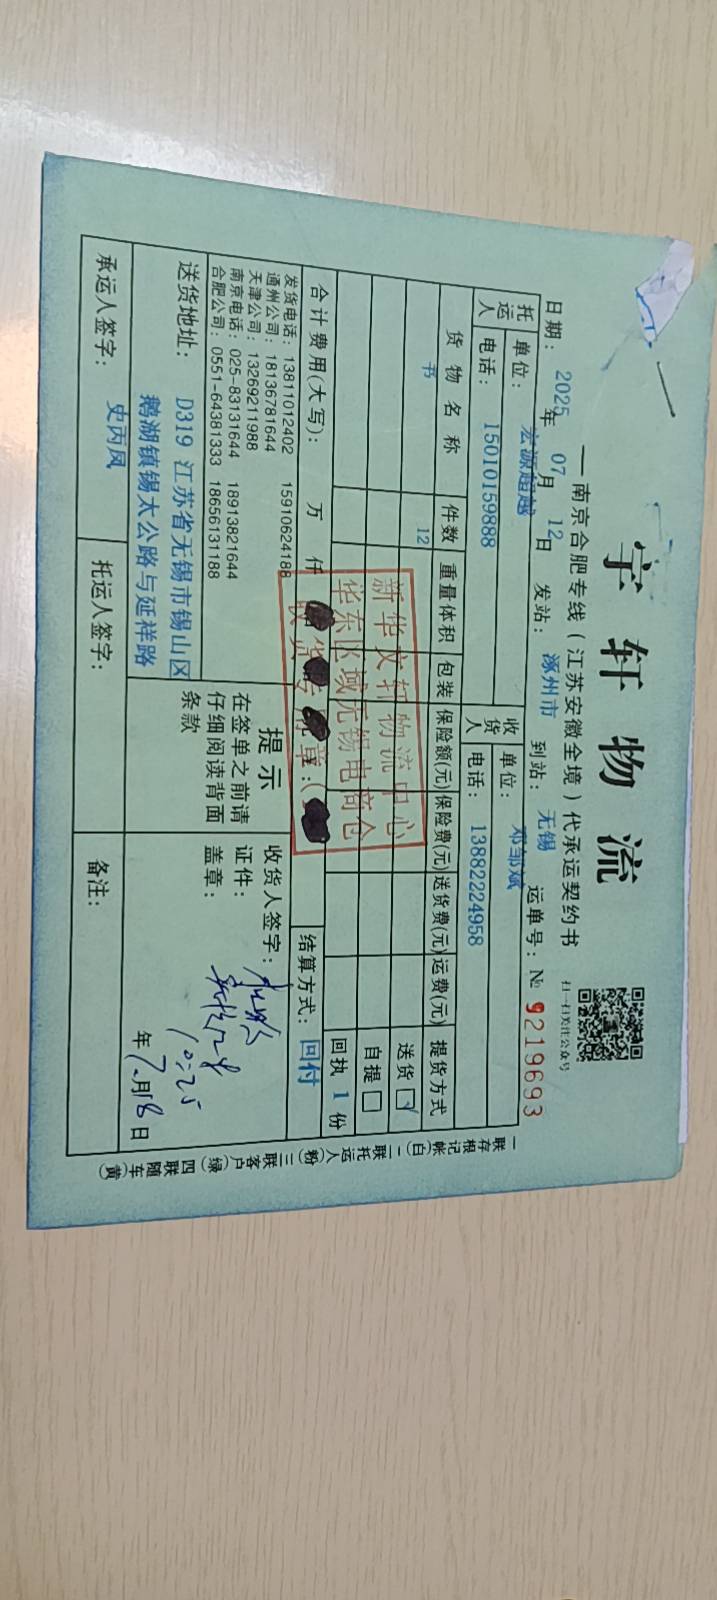 宇轩物流
——南京合肥专线（江苏安徽全境）代承运契约书
扫一扫关注公众号
日期： 2025 年 07 月 12 日 发站： 涿州市 到站： 无锡 运单号：№ 9219693
托运人 单位： 宏源超越 收货人 单位： 邓邹斌
电话： 15010159888 电话： 13882224958
货物名称 件数 重量体积 包装 保险额(元) 保险费(元) 送货费(元) 运费(元) 提货方式
书 12 送货 ☑
自提 □
回执 1 份
新华文轩物流中心
华东区域无锡电商仓
收货专用章：（
合计费用(大写)： 万 仟 结算方式： 回付
发货电话：13811012402 15910624188
通州公司：18136781644
天津公司：13269211988
南京电话：025-83131644 18913821644
合肥公司：0551-64381333 18656131188
提示
在签单之前请
仔细阅读背面
条款
收货人签字：
证件：
盖章：
10:25
年 7 月 18 日
送货地址： D319 江苏省无锡市锡山区
鹅湖镇锡太公路与延祥路
承运人签字： 史丙凤 托运人签字： 备注：
一联存根记帐(白) 二联托运人(粉) 三联客户(绿) 四联随车(黄)